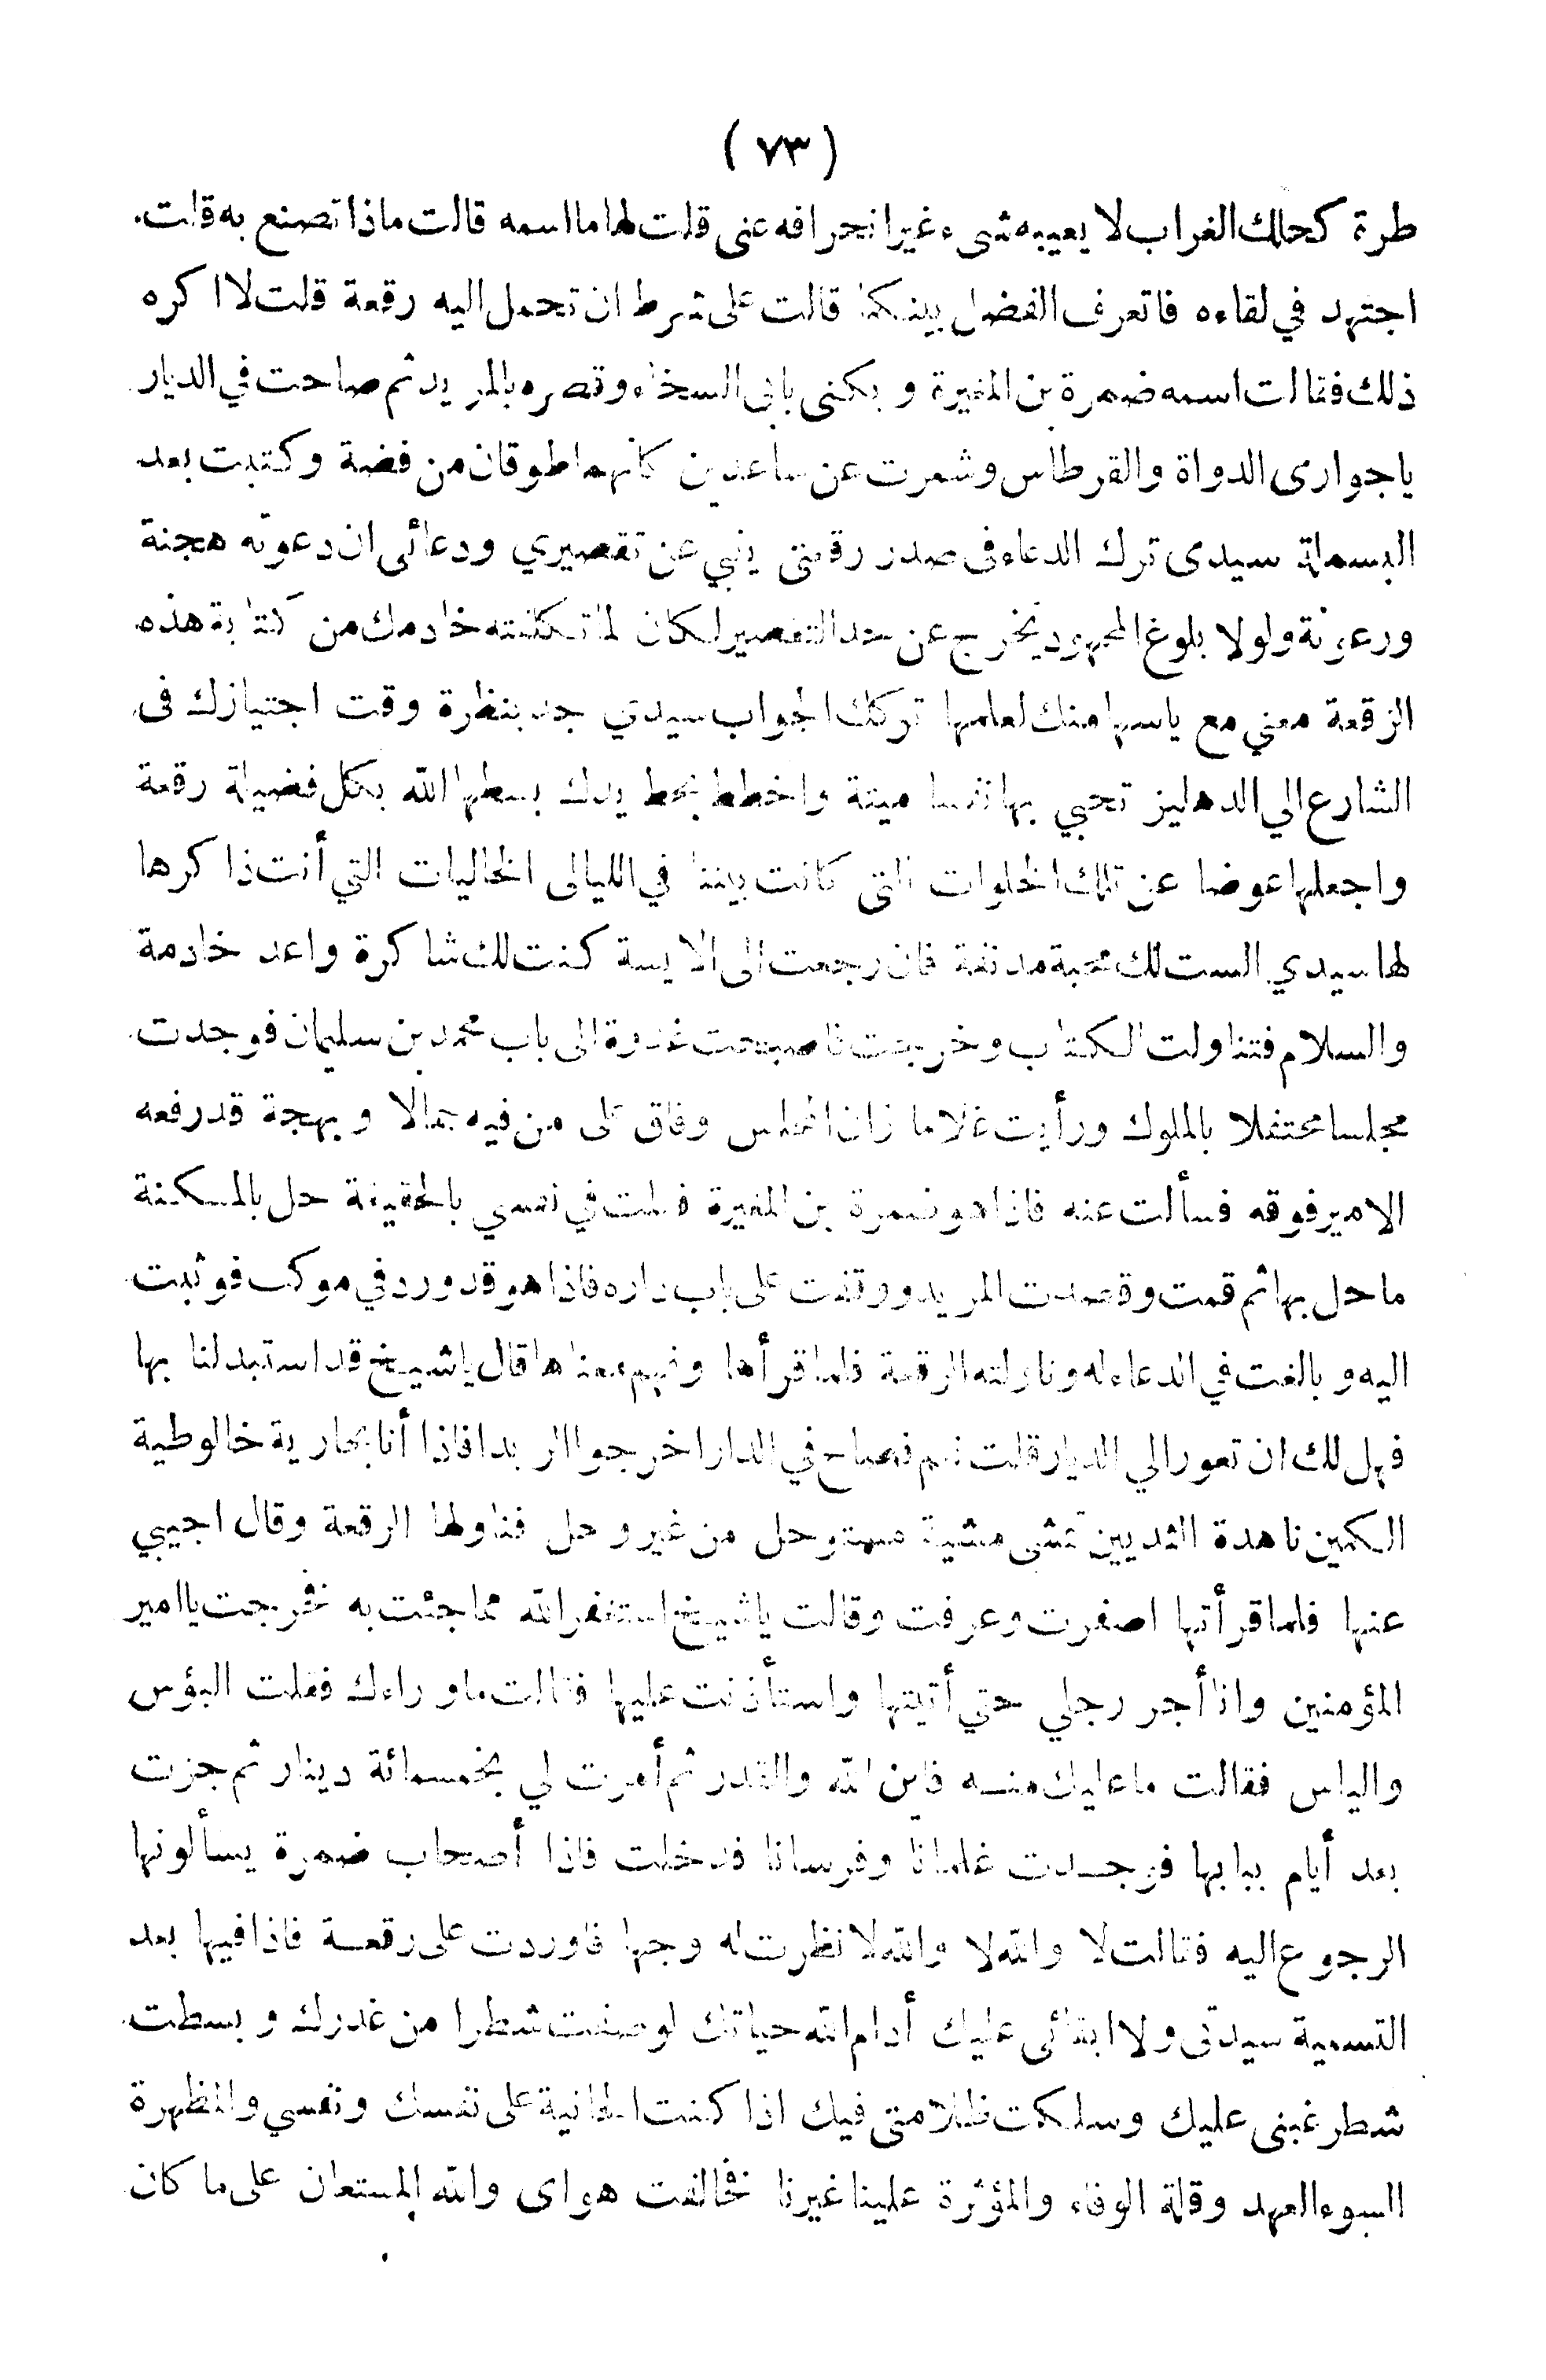 ( ٧٣ )
طرة كحالك الغراب لا يعيبه شىء غير انحرافه عنى قلت لها ما اسمه قالت ماذا تصنع به قلت
اجتهد في لقاءه فاتعرف الفضل بينكما قالت على شرط ان تحمل اليه رقعة قلت لا اكره
ذلك فقالت اسمه ضمرة بن المغيرة و يكنى بابى السخاء وقصره بالمريد ثم صاحت في الديار
ياجوارى الدواة والقرطاس وشمرت عن ساعدين كأنهما طوقان من فضة وكتبت بعد
البسملة سيدى ترك الدعاء فى صدر رقعتى ينبي عن تقصيري ودعائى ان دعوته هجنة
ورعونة ولولا بلوغ المجهود يخرج عن حد التقصير لكان لما تكلفته خادمك من كتابة هذه
الرقعة معني مع ياسها منك لعلمها تركك الجواب سيدي جد بنظرة وقت اجتيازك فى
الشارع الي الدهليز تحيي بها نفسا ميتة واخطط بخط يدك بسطها الله بكل فضيلة رقعة
واجعلها عوضا عن تلك الخلوات التى كانت بيننا في الليالى الخاليات التي أنت ذاكرها
لها سيدي الست لك محبة مدنفة فان رجعت الى الايسة كنت لك شاكرة واعد خادمة
والسلام فتناولت الكتاب وخرجت فاصبحت غدوة الى باب محمد بن سليمان فوجدت
مجلسا محتفلا بالملوك ورأيت غلاما زان المجلس وفاق على من فيه جمالا و بهجة قد رفعه
الامير فوقه فسألت عنه فاذا هو ضمرة بن المغيرة فقلت في نفسي بالحقيقة حل بالمسكنة
ما حل بها ثم قمت وقصدت المريد ووقفت على باب داره فاذا هو قد ورد في موكب فوثبت
اليه و بالغت في الدعاء له وناولته الرقعة فلما قرأها وفهم معناها قال ياشيخ قد استبدلنا بها
فهل لك ان تعور الي الديار قلت نعم فصاح في الدار اخرجوا الربدا فاذا أنا بجارية خالوطية
الكمين ناهدة الثديين تمشى مشية مستوحل من غير وحل فناولها الرقعة وقال اجيبي
عنها فلما قرأتها اصفرت وعرفت وقالت ياشيخ استغفر الله مما جئت به فخرجت يا امير
المؤمنين وانا أجر رجلي حتي أتيتها واستأذنت عليها فقالت ماوراءك فقلت البؤس
والياس فقالت ما عليك منه فاين الله والقدر ثم أمرت لي بخمسمائة دينار ثم جزت
بعد أيام ببابها فوجدت غلمانا وفرسانا فدخلت فاذا أصحاب ضمرة يسألونها
الرجوع اليه فقالت لا والله لا والله لا نظرت له وجها فاوردت على رقعة فاذا فيها بعد
التسمية سيدتى ولا ابقائى عليك أدام الله حياتك لوصفت شطرا من غدرك و بسطت
شطر غبنى عليك وسلكت ظلامتى فيك اذا كنت الجانية على نفسك ونفسي والمظهرة
السوء العهد وقلة الوفاء والمؤثرة علينا غيرنا فخالفت هواى والله المستعان على ما كان